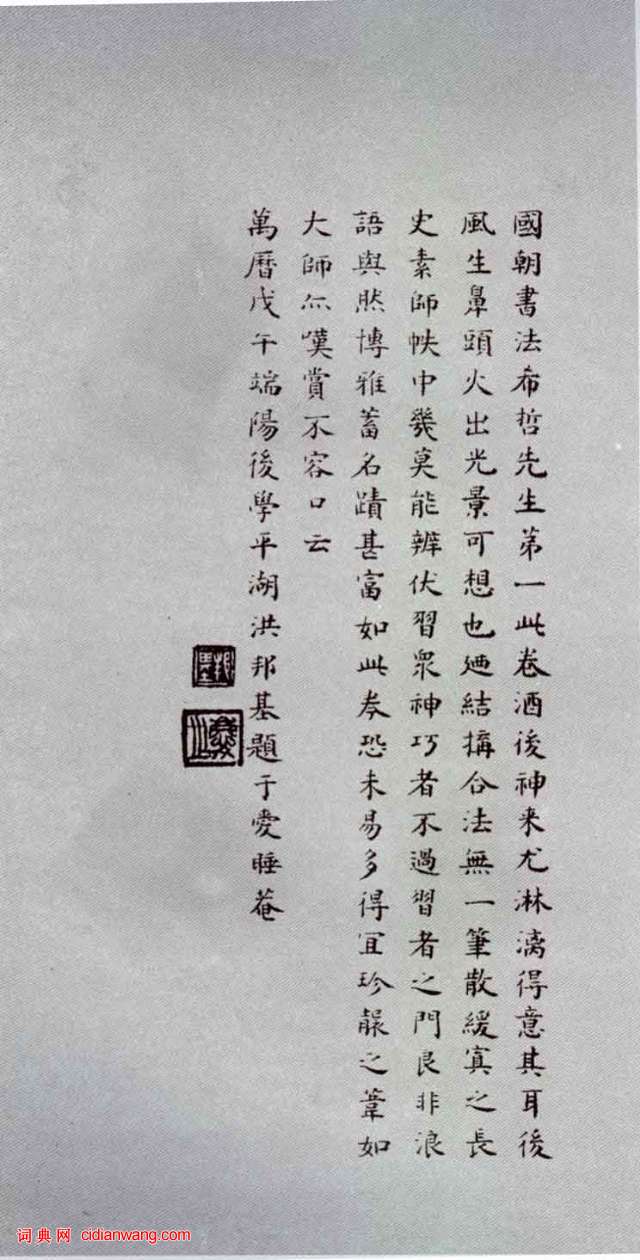 國朝書法希哲先生第一此卷酒後神来尤淋漓得意其耳後
風生鼻頭火出光景可想也廼結搆合法無一筆散緩寘之長
史素師帙中幾莫能辨伏習衆神巧者不過習者之門良非浪
語與然博雅蓄名蹟甚富如此卷恐未易多得宜珍藏之葦如
大師亦嘆賞不容口云
萬曆戊午端陽後學平湖洪邦基題于愛睡菴
词典网 cidianwang.com